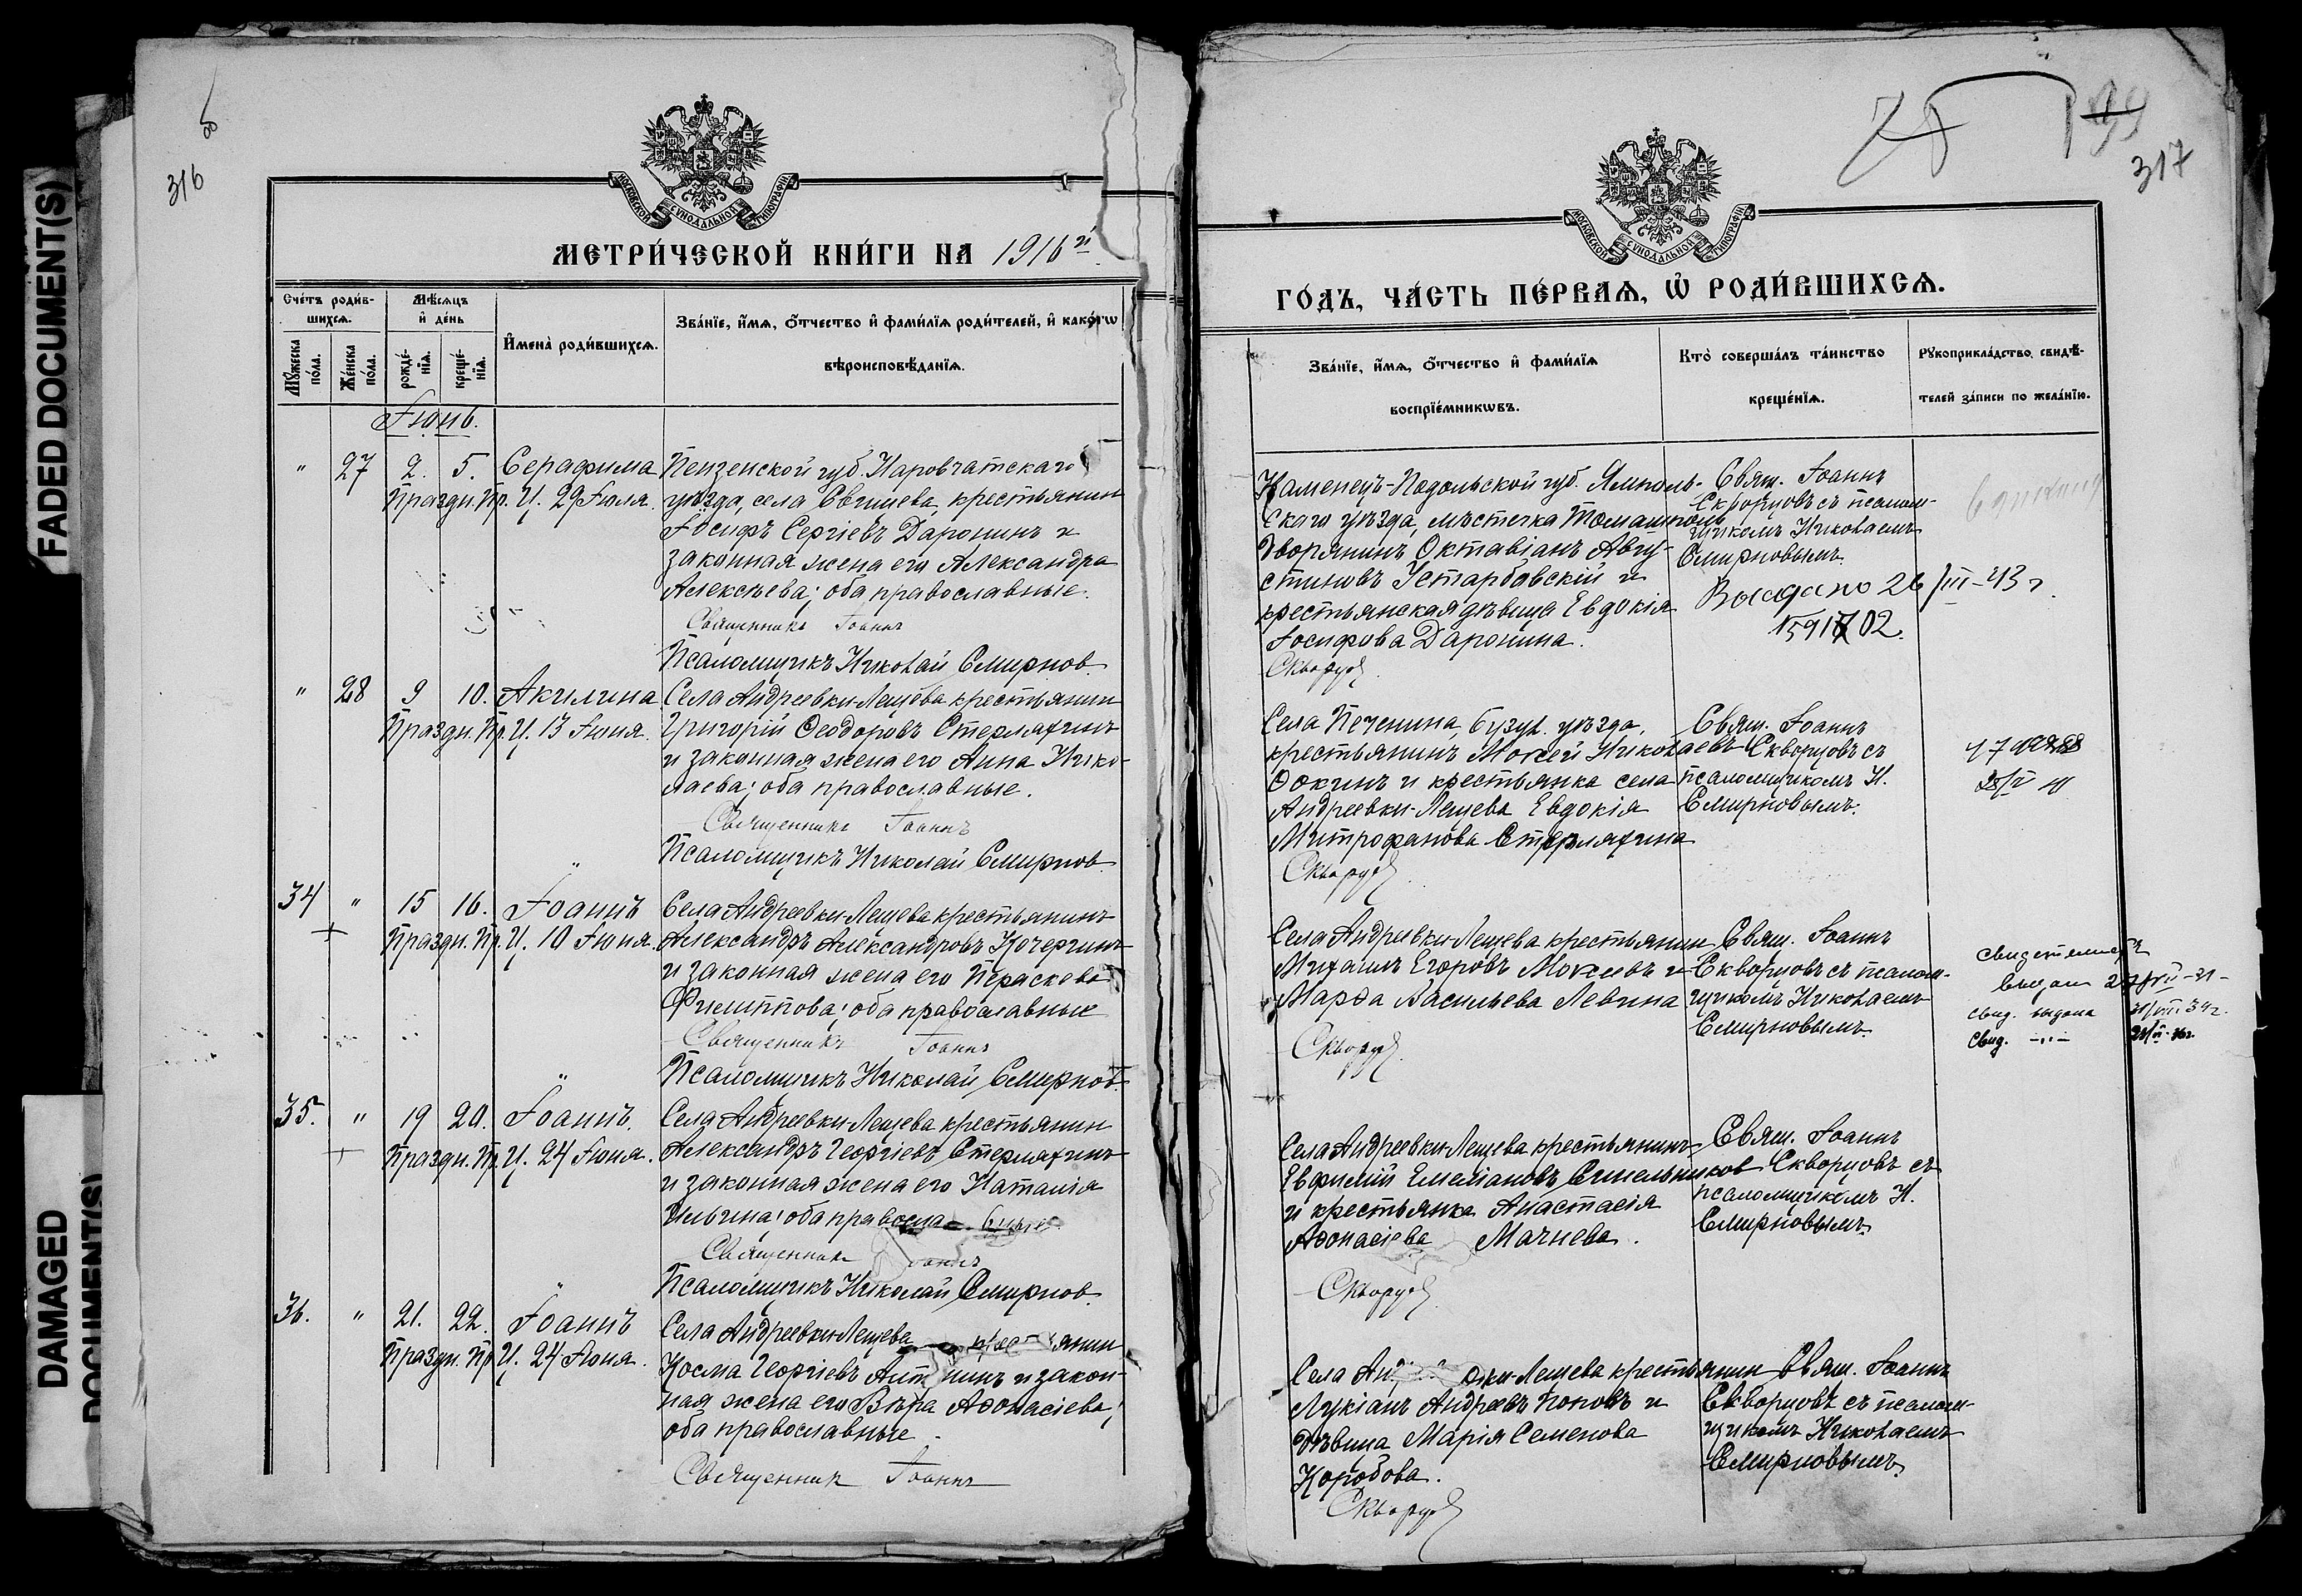 FADED DOCUMENT(S)
DAMAGED
DOCUMENT(S)
об
316
МОСКОВСКОЙ СѴНОДАЛЬНОЙ ТИПОГРАФІИ
МЕТРИ́ЧЕСКОЙ КНИ́ГИ НА 1916й
Сче́тъ роди́в-
шихсѧ.
Мѣ́сѧцъ
и҆ де́нь
Мꙋ́жеска
по́ла.
Же́нска
по́ла.
рожде́-
нїѧ.
креще́-
нїѧ.
И҆мена̀ роди́вшихсѧ.
Зва́нїе, и҆́мѧ, ѻ҆́тчество и҆ фами́лїѧ роди́телей, и҆ како́гѡ
вѣроисповѣ́данїѧ.
Іюнь.
" 27 2. 5. Серафима
Праздн. Пр. Ц. 29 Іюля.
Пензенской губ. Наровчатскаго
уѣзда, села Евгищева, крестьянин
Іосифъ Сергіевъ Даронинъ и
законная жена его Александра
Алексѣева; оба православные.
Священникъ Іоаннъ
Псаломщикъ Николай Смирнов.
" 28 9 10. Акилина
Праздн. Пр. Ц. 13 Іюня.
Села Андреевки-Лещева крестьянин
Григорій Ѳеодоровъ Стерляхинъ
и законная жена его Анна Нико-
лаева; оба православные.
Священникъ Іоаннъ
Псаломщикъ Николай Смирнов.
34 " 15 16. Іоаннъ
Праздн. Пр. Ц. 10 Іюня.
Села Андреевки-Лещева крестьянинъ
Александръ Александровъ Кочергинъ
и законная жена его Пераскева
Филиппова; оба православные
Священникъ Іоаннъ
Псаломщикъ Николай Смирнов.
35. " 19 20. Іоаннъ.
Праздн. Пр. Ц. 24 Іюня.
Села Андреевки-Лещева крестьянин
Александръ Георгіевъ Стерляхинъ
и законная жена его Наталія
Ильина; оба правосла
Священникъ Іоаннъ
Псаломщикъ Николай Смирнов.
36. " 21. 22. Іоаннъ
Праздн. Пр. Ц. 24 Іюня.
Села Андреевки-Лещева крестьянин
Косма Георгіевъ Антонинъ и закон-
ная жена его Вѣра Аѳонасіева;
оба православные.
Священник Іоаннъ
199
317
МОСКОВСКОЙ СѴНОДАЛЬНОЙ ТИПОГРАФІИ
ГО́ДЪ, ЧА́СТЬ ПЕ́РВАѦ, Ѡ҆ РОДИ́ВШИХСѦ.
Зва́нїе, и҆́мѧ, ѻ҆́тчество и҆ фами́лїѧ
воспрїе́мникѡвъ.
Кто̀ соверша́лъ та́инство
креще́нїѧ.
Рꙋкоприкла́дство свидѣ́-
телей за́писи по жела́нїю.
Каменецъ-Подольской губ. Ямполь-
скаго уѣзда, мѣстечка Томашполь
дворянинъ Октавіанъ Авгу-
стиновъ Устарбовскій и
крестьянская дѣвица Евдокія
Іосифова Даронина.
Скворцов
Свящ. Іоаннъ
Скворцовъ съ псалом-
щикомъ Николаемъ
Смирновымъ.
Выдано 26/III-43 г.
Села Печенина, Бузул. уѣзда,
крестьянинъ Мокей Николаевъ
Ѳокинъ и крестьянка села
Андреевки-Лещева Евдокія
Митрофанова Стерляхина
Скворцов
Свящ. Іоаннъ
Скворцовъ съ
псаломщикомъ Н.
Смирновымъ.
Села Андреевки-Лещева крестьянин
Михаилъ Егоровъ Мокеевъ и
Марѳа Васильева Левина
Скворцов
Свящ. Іоаннъ
Скворцовъ съ псалом-
щикомъ Николаемъ
Смирновымъ.
свид. выдана
свид. -"-
Села Андреевки-Лещева крестьянинъ
Евфимій Емеліановъ Синельников
и крестьянка Анастасія
Аѳонасіева Мачнева.
Скворцов
Свящ. Іоаннъ
Скворцовъ съ
псаломщикомъ Н.
Смирновымъ.
Села Андреевки-Лещева крестьянин
Лукіанъ Андреевъ Поповъ и
дѣвица Марія Семенова
Коробова.
Скворцов
Свящ. Іоаннъ
Скворцовъ съ псалом-
щикомъ Николаемъ
Смирновымъ.